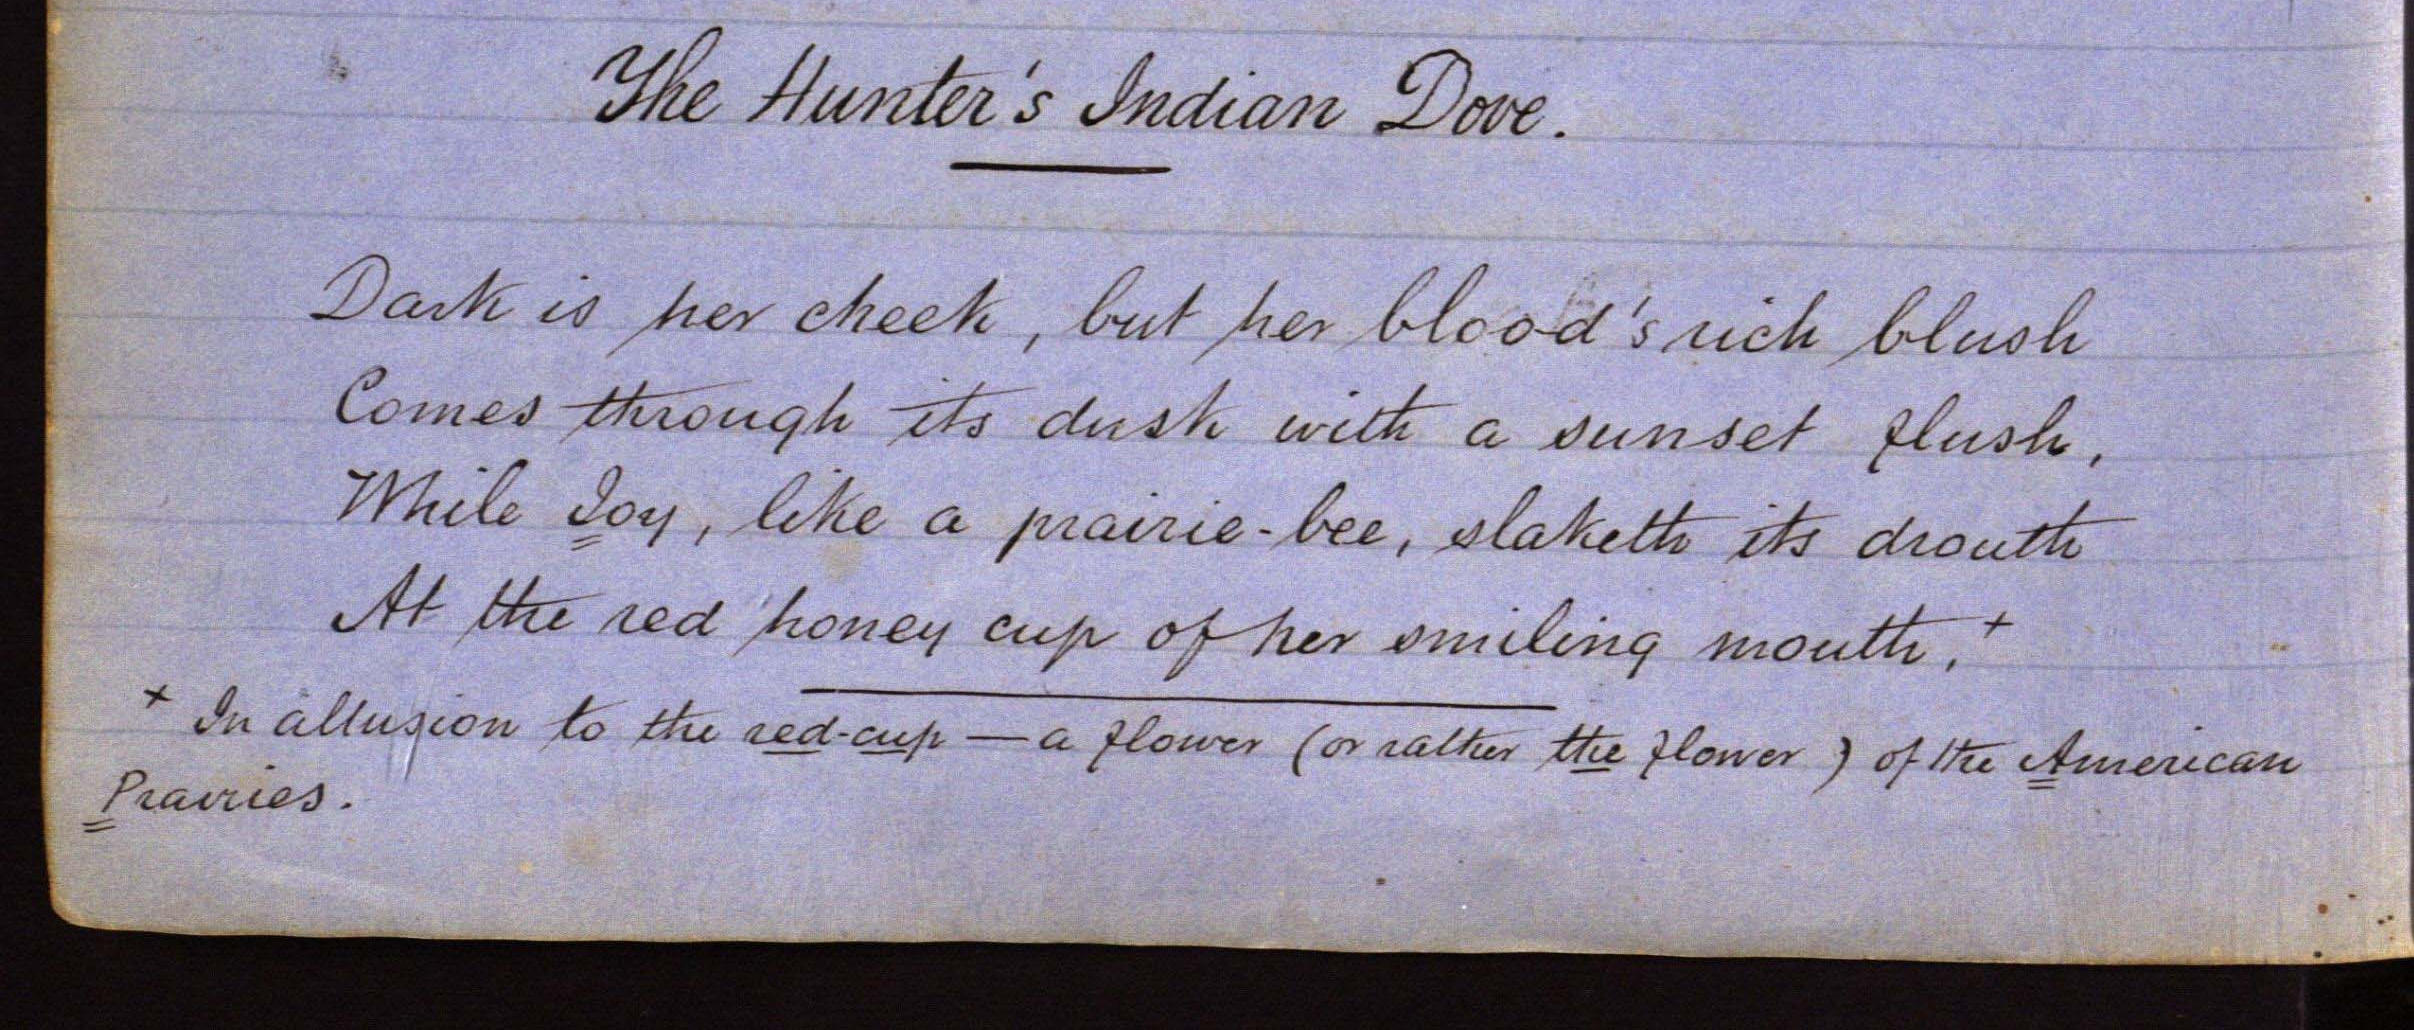 The Hunter's Indian Dove.
Dark is her cheek, but her blood's rich blush
Comes through its dusk with a sunset flush,
While Joy, like a prairie-bee, slaketh its drouth
At the red honey cup of her smiling mouth.+
+ In allusion to the red-cup — a flower (or rather the flower) of the American
Prairies.